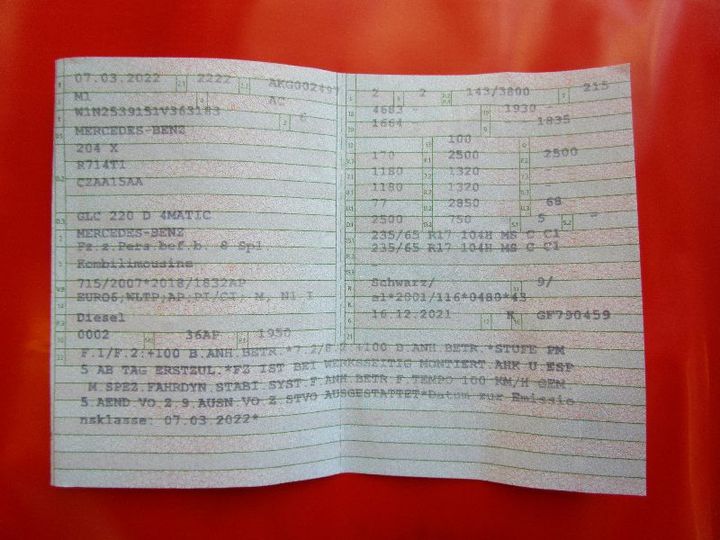 07.03.2022 2222 AKG002497
M1 AC
W1N2539151V3631#3 6
MERCEDES-BENZ
204 X
R714T1
CZAA15AA
GLC 220 D 4MATIC
MERCEDES-BENZ
Fz.z.Pers.bef.b. 8 Spl.
Kombilimousine
715/2007*2018/1832AP
EURO6;WLTP;AP;PI/CI; M, N1 I
Diesel
0002 36AP 1950
2 2 143/3800 215
4683 - 1930 -
1664 1835
100
170 2500 2500
1180 1320 -
1180 1320 -
77 2850 68
2500 750 5 -
235/65 R17 104H MS C C1
235/65 R17 104H MS C C1
Schwarz/ 9/
e1*2001/116*0480*43
16.12.2021 K GF790459
F.1/F.2:+100 B.ANH.BETR.*7.2/8.2:+100 B.ANH.BETR.*STUFE PM
5 AB TAG ERSTZUL.*FZ IST BEI WERKSSEITIG MONTIERT.AHK U.ESP
M.SPEZ.FAHRDYN.STABI SYST.F.ANH.BETR.F.TEMPO 100 KM/H GEM
5.AEND VO.Z.9.AUSN.VO.Z.STVO AUSGESTATTET*Datum zur Emissio
nsklasse: 07.03.2022*